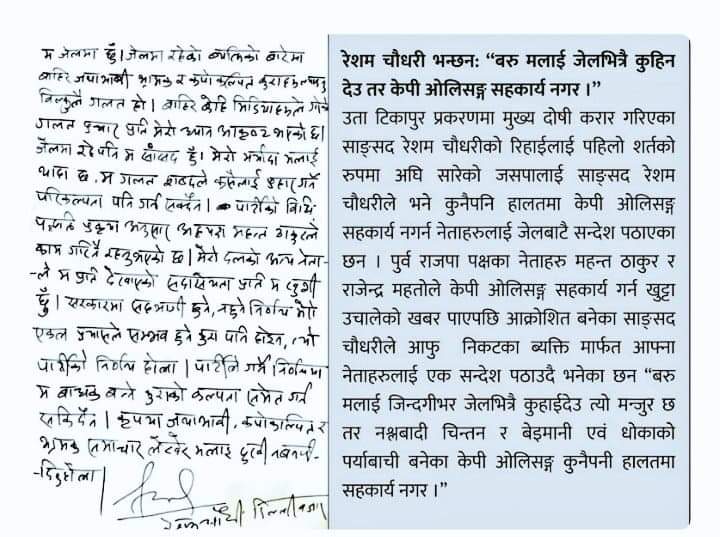 म जेलमा छु। जेलमा रहेको व्यक्तिको बारेमा
बाहिर जथाभाबी भ्रामक र कपोकल्पित कुराहरू
विल्कुलै गलत हो। बाहिर केहि मिडियाहरूले
गलत प्रचार प्रति मेरो ध्यान आकृष्ट भएको छ।
जेलमा रहे पनि म सांसद हुँ। मेरो मर्यादा मलाई
थाहा छ, म गलत शब्दले कसैलाई प्रहार गर्ने
परिकल्पना पनि गर्न सक्दैन। पार्टीको विधि
पद्धति प्रकृया अनुसार अध्यक्ष महन्त ठाकुरले
काम गरिनै रहनुभएको छ। मेरो दलको अन्य नेता-
-ले म प्रति देखाएको सदासयता प्रति म खुशी
छुँ। सरकारमा सहभागी हुने, नहुने निर्णय मेरो
एकल प्रयासले सम्भव हुने कुरा पनि होईन, त्यो
पार्टीको निर्णय होला। पार्टीले गर्ने निर्णयमा
म बाधक बन्ने कुराको कल्पना समेत गर्न
सकिदैन। कृपया जथाभाबी, कपोकल्पित र
भ्रामक समाचार लेखेर मलाई दुःखी नबनाई-
-दिनुहोला।
रेशम चौधरी डिल्लीबजार
रेशम चौधरी भन्छन: “बरु मलाई जेलभित्रै कुहिन
देउ तर केपी ओलिसङ्ग सहकार्य नगर।”
उता टिकापुर प्रकरणमा मुख्य दोषी करार गरिएका
साङ्सद रेशम चौधरीको रिहाईलाई पहिलो शर्तको
रुपमा अघि सारेको जसपालाई साङ्सद रेशम
चौधरीले भने कुनैपनि हालतमा केपी ओलिसङ्ग
सहकार्य नगर्न नेताहरुलाई जेलबाटै सन्देश पठाएका
छन । पुर्व राजपा पक्षका नेताहरु महन्त ठाकुर र
राजेन्द्र महतोले केपी ओलिसङ्ग सहकार्य गर्न खुट्टा
उचालेको खबर पाएपछि आक्रोशित बनेका साङ्सद
चौधरीले आफु निकटका ब्यक्ति मार्फत आफ्ना
नेताहरुलाई एक सन्देश पठाउदै भनेका छन “बरु
मलाई जिन्दगीभर जेलभित्रै कुहाईदेउ त्यो मन्जुर छ
तर नश्लबादी चिन्तन र बेइमानी एवं धोकाको
पर्याबाची बनेका केपी ओलिसङ्ग कुनैपनी हालतमा
सहकार्य नगर ।”